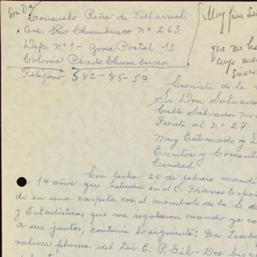 Sra Da
Consuelo Peña de Villarreal.
Ave. Río Churubusco Nº 263.
Dep. nº 1 - Zona Postal 13
Colonia Prado Churubusco.
Teléfono 582-85-57.
Muy fina Se
que no ha
cuyo nue
Cronista de la
Sr. Don Salvado
Calle Salvador No
Frente al Nº 27.
Muy Estimado y
Escritor y Coment
Ciudad.
Con fecha 20 de febrero mandé
14 años que estudié en el
do en una carpeta con el membrete de la S. de
y Estadística que me regalaron cuando yo co
a sus juntas, contenía lo siguiente: Un Traba
valiosa pluma del Lic. E. P. Gil - Dos